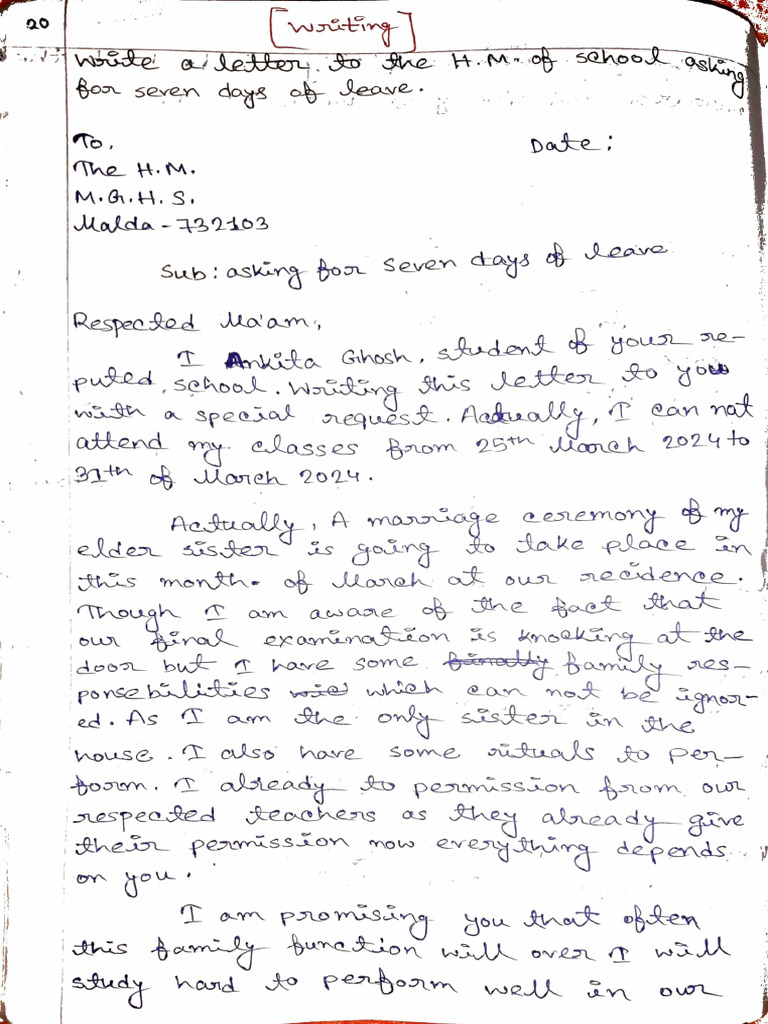 20
[Writing]
Write a letter to the H.M. of school asking
for seven days of leave.
To,
Date:
The H.M.
M.G.H.S.
Malda - 732103
Sub: asking for seven days of leave
Respected Ma'am,
I Ankita Ghosh, student of your re-
puted school. Writing this letter to you
with a special request. Actually, I can not
attend my classes from 25th March 2024 to
31th of March 2024.
Actually, A marriage ceremony of my
elder sister is going to take place in
this month. of March at our recidence.
Though I am aware of the fact that
our final examination is knocking at the
door but I have some finally family res-
ponsebilities wic which can not be ignor-
ed. As I am the only sister in the
house. I also have some rituals to per-
form. I already to permission from our
respected teachers as they already give
their permission now everything depends
on you.
I am promising you that often
this family function will over I will
study hard to perform well in our